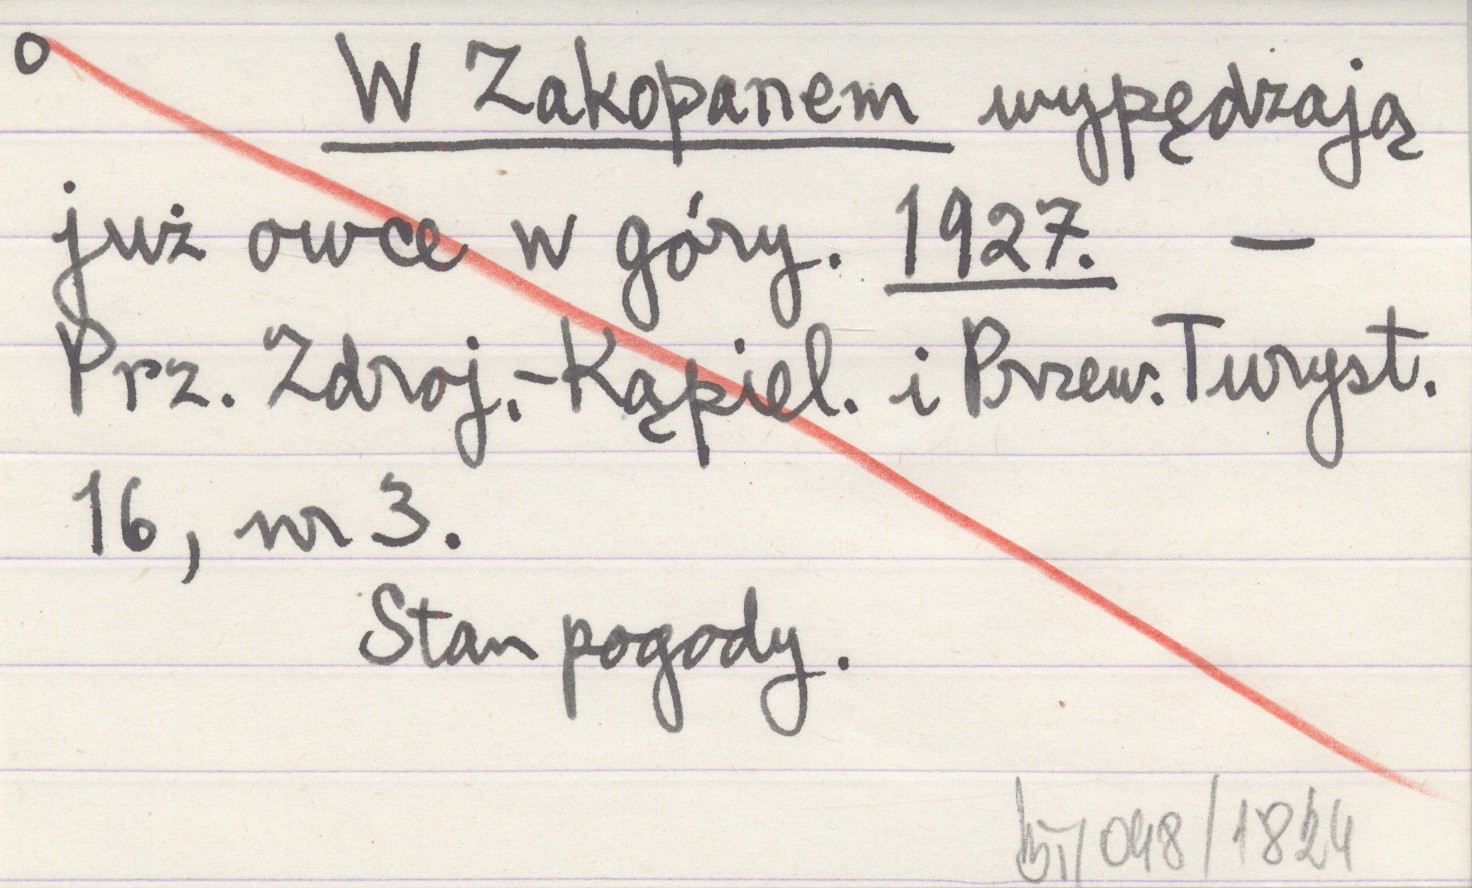 o W Zakopanem wypędzają
już owce w góry. 1927. —
Prz. Zdroj.-Kąpiel. i Przew. Turyst.
16, nr 3.
Stan pogody.
048/1824